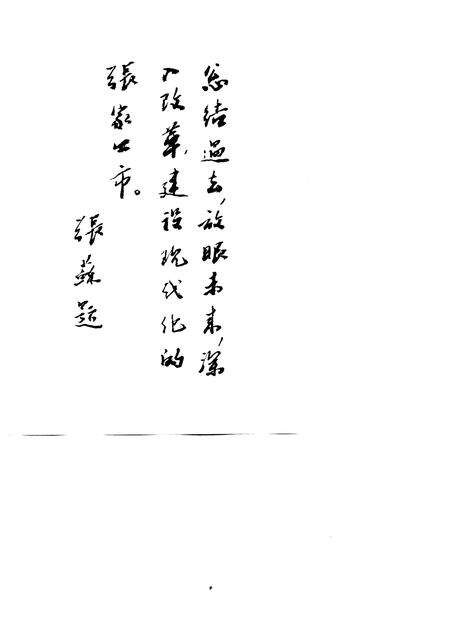 总结過去，放眼未来，深
入改革，建设现代化的
張家口市。
張蘇题